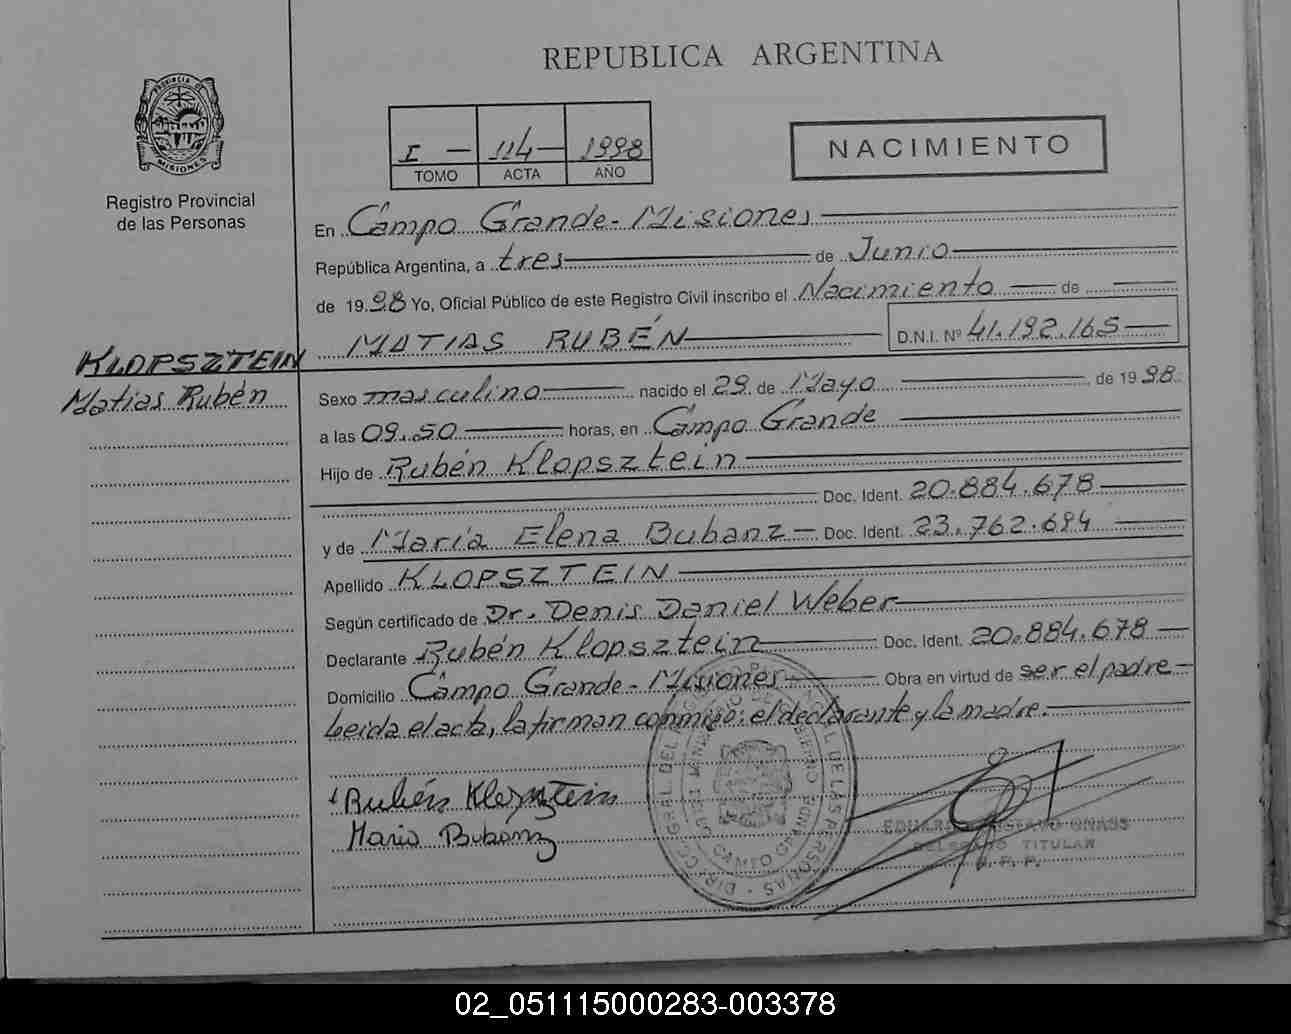 REPUBLICA ARGENTINA
PROVINCIA DE
MISIONES
Registro Provincial
de las Personas
I — 114 — 1998
TOMO ACTA AÑO
NACIMIENTO
En Campo Grande - Misiones
República Argentina, a tres de Junio
de 1998 Yo, Oficial Público de este Registro Civil inscribo el Nacimiento de
MATIAS RUBÉN D.N.I. Nº 41.192.165
KLOPSZTEIN
Matias Rubén
Sexo masculino nacido el 29 de Mayo de 1998
a las 09.50 horas, en Campo Grande
Hijo de Rubén Klopsztein
Doc. Ident. 20.884.678
y de Maria Elena Bubanz Doc. Ident. 23.762.694
Apellido KLOPSZTEIN
Según certificado de Dr. Denis Daniel Weber
Declarante Rubén Klopsztein Doc. Ident. 20.884.678
Domicilio Campo Grande - Misiones Obra en virtud de ser el padre
Leida el acta, la firman conmigo: el declarante y la madre.
Rubén Klopsztein
Maria Bubanz
DELEGADO TITULAR
02_051115000283-003378